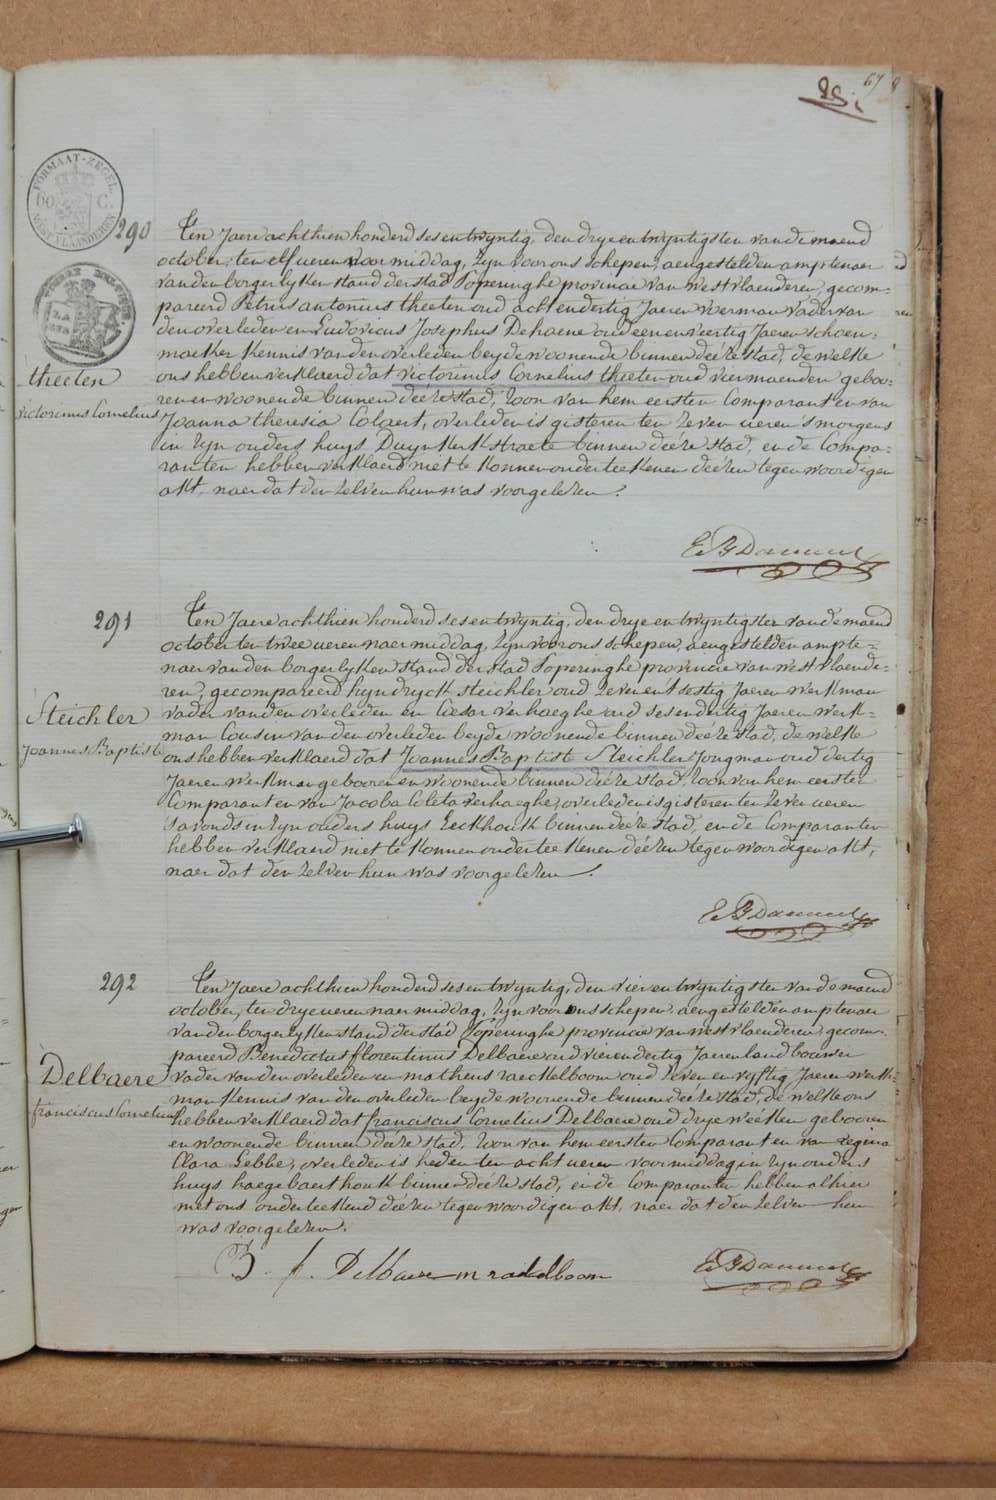 28
67
FORMAAT-ZEGEL
60 C.
WEST VLAANDEREN
290
theeten
victorinus Cornelius
Ten Jaere achthien honderd ses en twyntig, den drye en twyntigsten van de maend
october, ten elf ueren voormiddag, zyn voor ons schepen, aengestelden amptenaer
van den borgerlyken stand der stad Poperinghe provincie van westvlaenderen, gecom-
pareerd Petrus antonius theeten oud acht endertig Jaeren werman vader van
den overleden en Ludovicus Josephus Dehaene oud een en veertig Jaeren schoen-
maeker kennis van den overleden beyde woonende binnen deéze stad, de welke
ons hebben verklaerd dat victorinus Cornelius theeten oud vier maenden geboo-
ren en woonende binnen deéze stad, zoon van hem eersten Comparant en van
Joanna theresia Colaert, overleden is gisteren ten zeven ueren 's morgens
in zyn ouders huys Duynkerkstraete binnen deéze stad, en de Compa-
ranten hebben verklaerd niet te konnen onderteekenen deézen tegenwoordigen
akt, naer dat den zelven hun was voorgelezen.
291
Steichler
Joannes Baptiste
Ten Jaere achthien honderd ses en twyntig, den drye en twyntigsten van de maend
october ten twee ueren naermiddag, zyn voor ons schepen, aengestelden ampte-
naer van den borgerlyken stand der stad Poperinghe provincie van westvlaende-
ren, gecompareerd hyndryck steichler oud zeven en 't sestig Jaeren werkman
vader van den overleden en Cesar verhaeghe oud ses endertig Jaeren werk-
man Cousin van den overleden beyde woonende binnen deéze stad, de welke
ons hebben verklaerd dat Joannes Baptiste Steichler Jongman oud dertig
Jaeren werkman gebooren en woonende binnen deéze stad, zoon van hem eersten
Comparant en van Jacoba Coleta verhaeghe, overleden is gisteren ten zeven ueren
's avonds in zyn ouders huys Eeckhoutk binnen deéze stad, en de Comparanten
hebben verklaerd niet te konnen onderteekenen deézen tegenwoordigen akt,
naer dat den zelven hun was voorgelezen.
292
Delbaere
franciscus Cornelius
Ten Jaere achthien honderd ses en twyntig, den vier en twyntigsten van de maend
october, ten drye ueren naermiddag, zyn voor ons schepen, aengestelden amptenaer
van den borgerlyken stand der stad Poperinghe provincie van westvlaenderen, gecom-
pareerd Benedictus florentinus Delbaere oud vier endertig Jaeren landbouwer
vader van den overleden en matheus raeckelboom oud zeven en vyftig Jaeren werk-
man kennis van den overleden beyde woonende binnen deéze stad, de welke ons
hebben verklaerd dat franciscus Cornelius Delbaere oud drye weéken gebooren
en woonende binnen deéze stad, zoon van hem eersten Comparant en van regina
Clara Lebbe, overleden is heden ten acht ueren voormiddag in zyn ouders
huys haegebaerthoutk binnen deéze stad, en de Comparanten hebben alhier
met ons onderteekend deézen tegenwoordigen akt, naer dat den zelven hun
was voorgelezen.
B. f. Delbaere m rackelboom